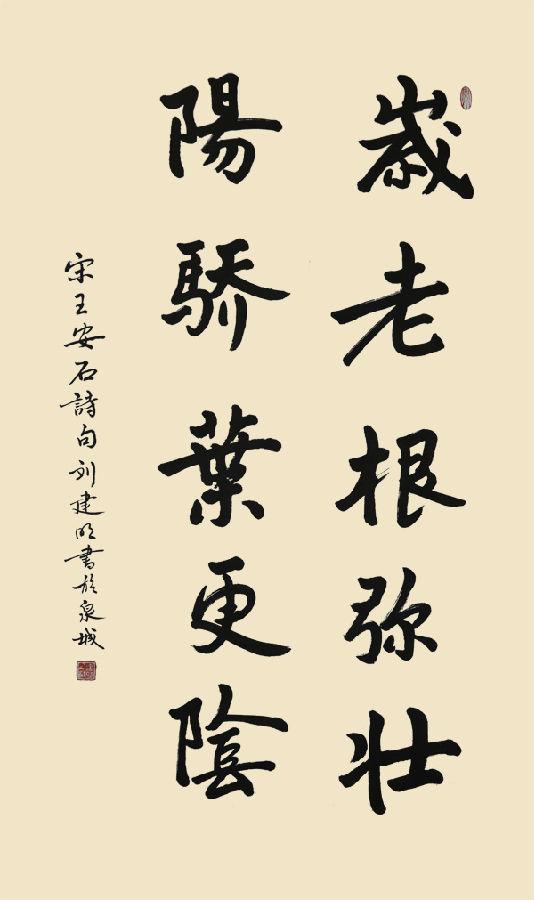 歲老根弥壮
陽驕葉更陰
宋王安石詩句刘建明書於泉城